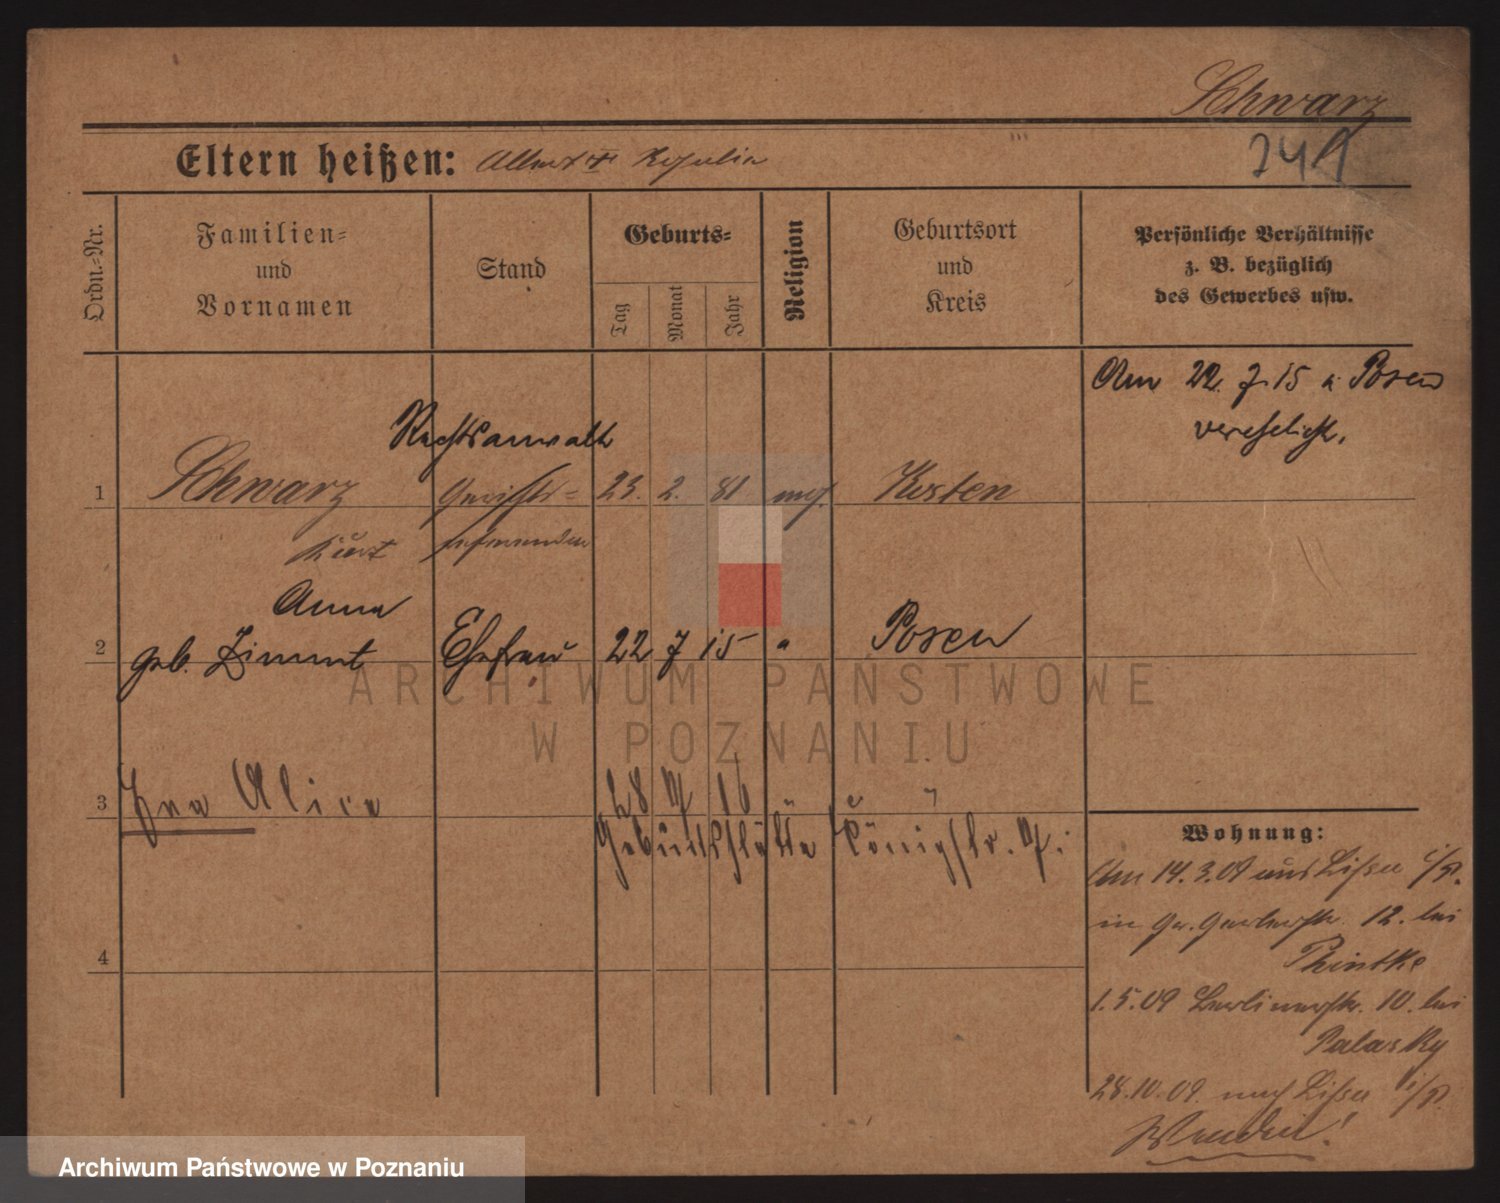 Schwarz
Eltern heißen: Albert +
Ordn.-Nr.
Familien-
und
Vornamen
Stand
Geburts-
Tag
Monat
Jahr
Religion
Geburtsort
und
Kreis
Persönliche Verhältnisse
z. B. bezüglich
des Gewerbes usw.
Am 22. 7. 15 i. Posen
verehelicht.
Rechtsanwalt
1 Schwarz Gerichts- 23. 2. 81 Kosten
Kurt referendar
Anna
2 geb. Zimmt Ehefrau 22 7 15 " Posen
3 Alice 28 16
Geburtsstätte Königstr.
4
Wohnung:
Am 14.3.09 aus Lissa i/P.
in Gr. Gerberstr. 12. bei
1.5.09 Berlinerstr. 10. bei
Palasky
28.10.09 nach Lissa i/P.
Wenden!
ARCHIWUM PAŃSTWOWE
W POZNANIU
Archiwum Państwowe w Poznaniu